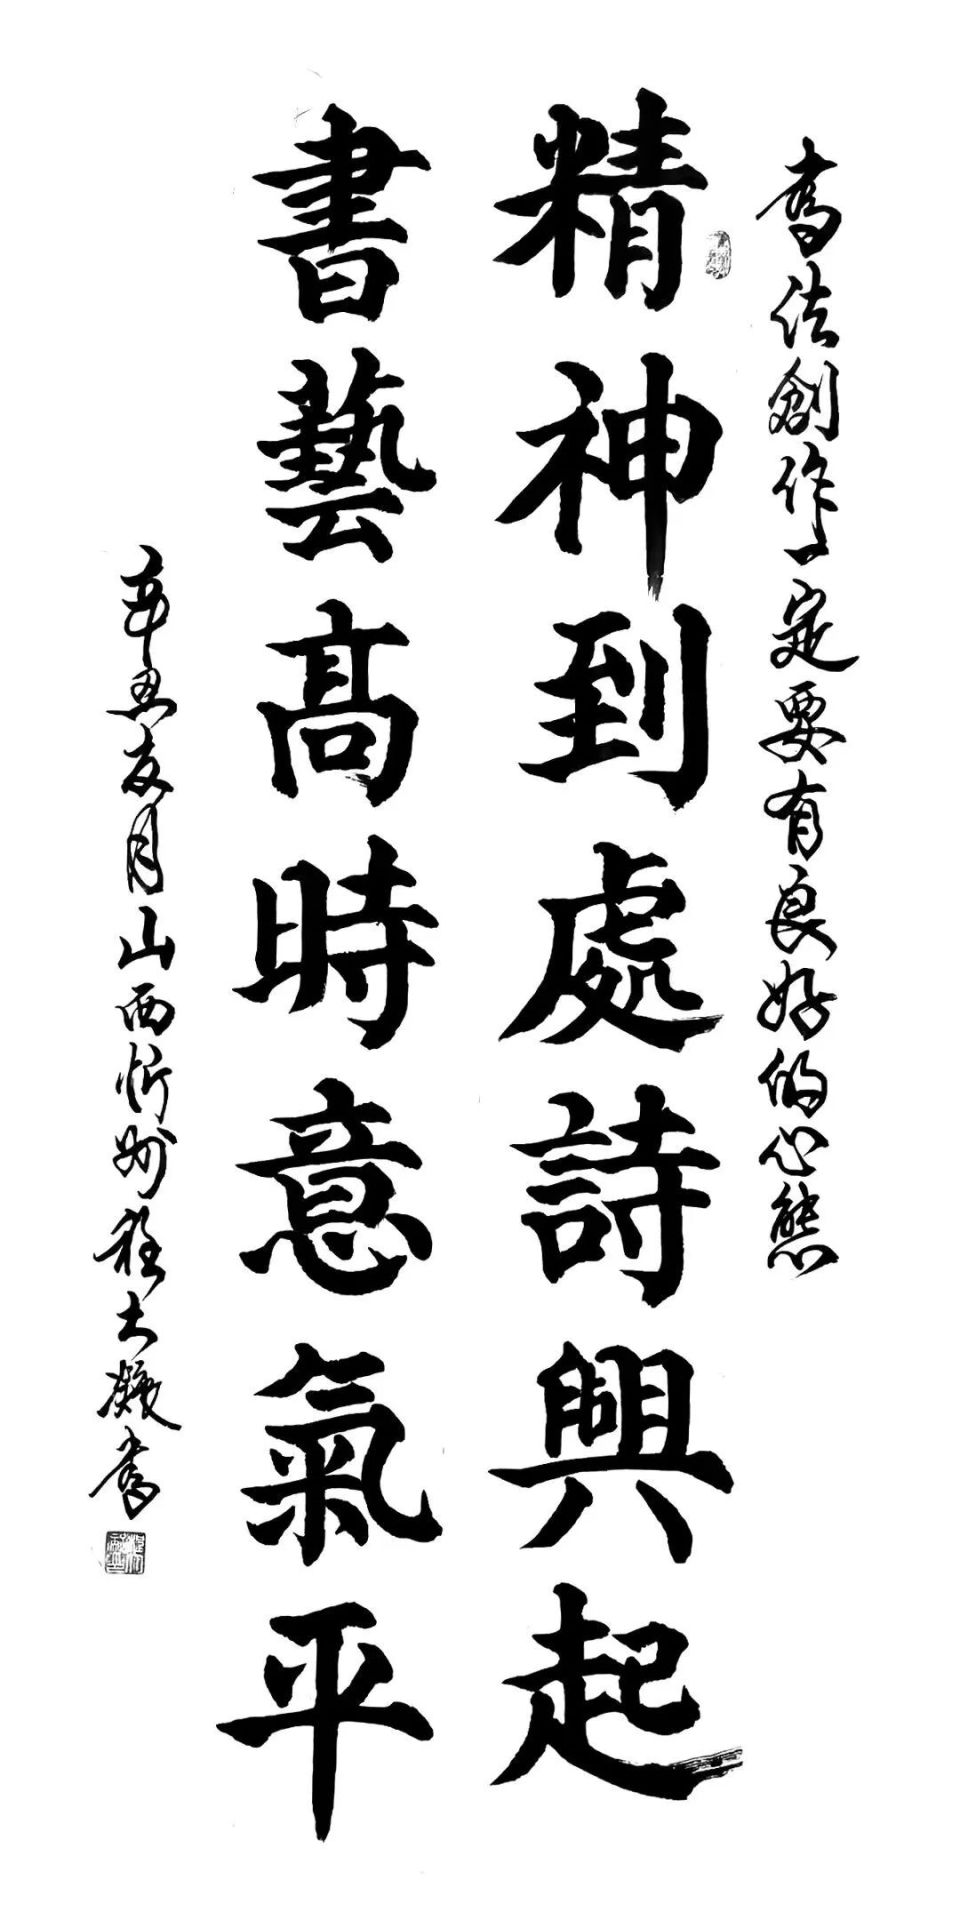 書法創作一定要有良好的心態
精神到處詩興起
書藝高時意氣平
辛丑夏月山西忻州程大凝書